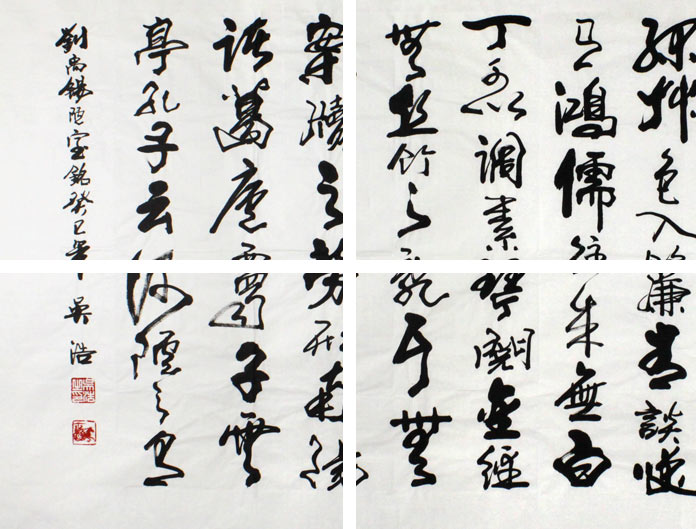 綠艸色入簾青談笑
有鴻儒往來無白
丁可以調素琴閱金經
無絲竹之亂耳無
案牘之勞形南陽
諸葛廬西蜀子雲
亭孔子云何陋之有
劉禹錫陋室銘癸巳 吳浩